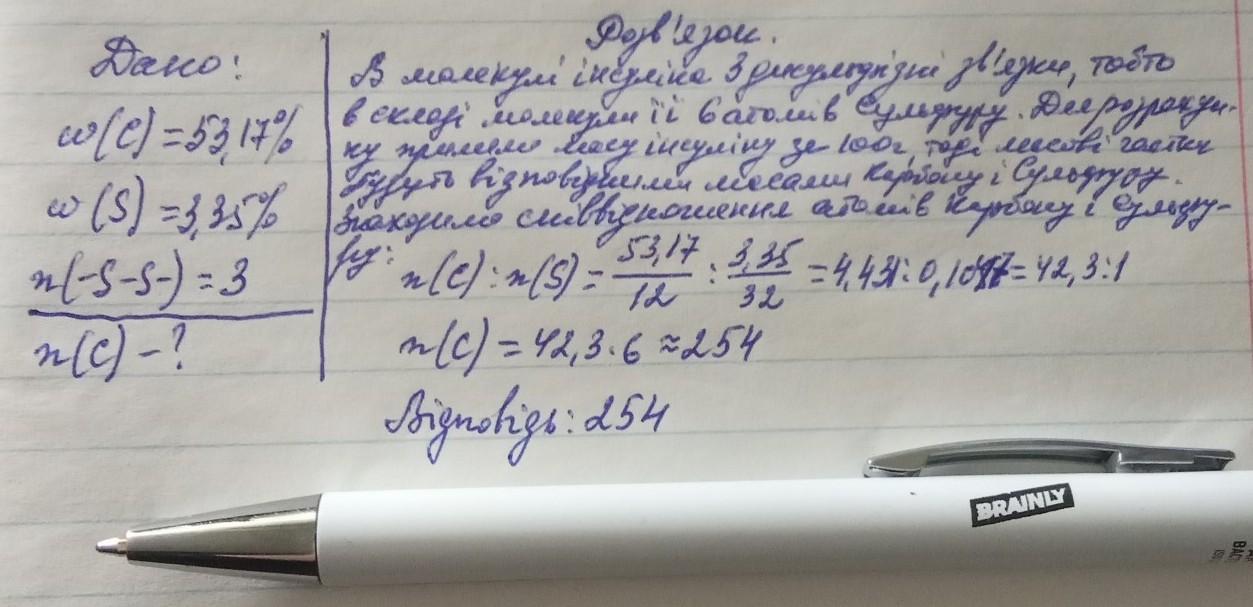 Дано:
w(C) = 53,17%
w(S) = 3,35%
n(-S-S-) = 3
n(C) - ?
Розв'язок.
В молекулі інсуліна 3 дисульфідні зв'язки, тобто
в складі молекули її 6 атомів Сульфуру. Для розрахун-
ку приймемо масу інсуліну за 100г, тоді масові частки
будуть відповідними масами Карбону і Сульфуру.
Знаходимо співвідношення атомів Карбону і Сульфу-
ру:
n(C) : n(S) = 53,17/12 : 3,35/32 = 4,431 : 0,1047 = 42,3 : 1
n(C) = 42,3 · 6 ≈ 254
Відповідь: 254
BRAINLY